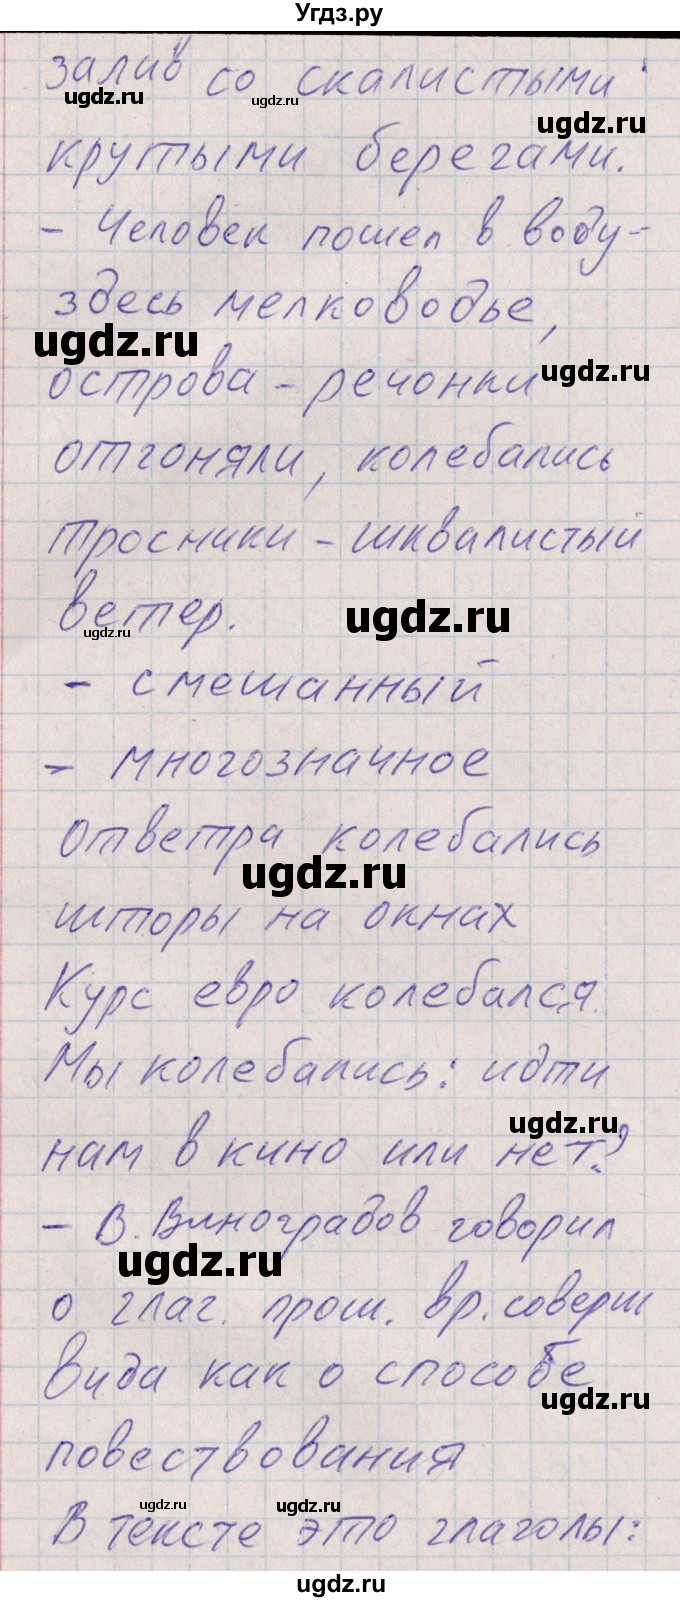 Угдз.ру
залив со скалистыми
ugdz.ru ugdz.ru ugdz.ru
крутыми берегами.
- Человек пошел в воду -
здесь мелководье,
ugdz.ru ugdz.ru
острова - речонки
отгоняли, колебались
тросники - шквалистый
ветер.
ugdz.ru ugdz.ru
- смешанный
- многозначное
От ветра колебались
ugdz.ru
шторы на окнах
Курс евро колебался.
Мы колебались: идти
ugdz.ru
нам в кино или нет?
- В. Виноградов говорил
ugdz.ru
о глаг. прош. вр. соверш
вида как о способе
ugdz.ru
повествования
ugdz.ru ugdz.ru
В тексте это глаголы:
ugdz.ru